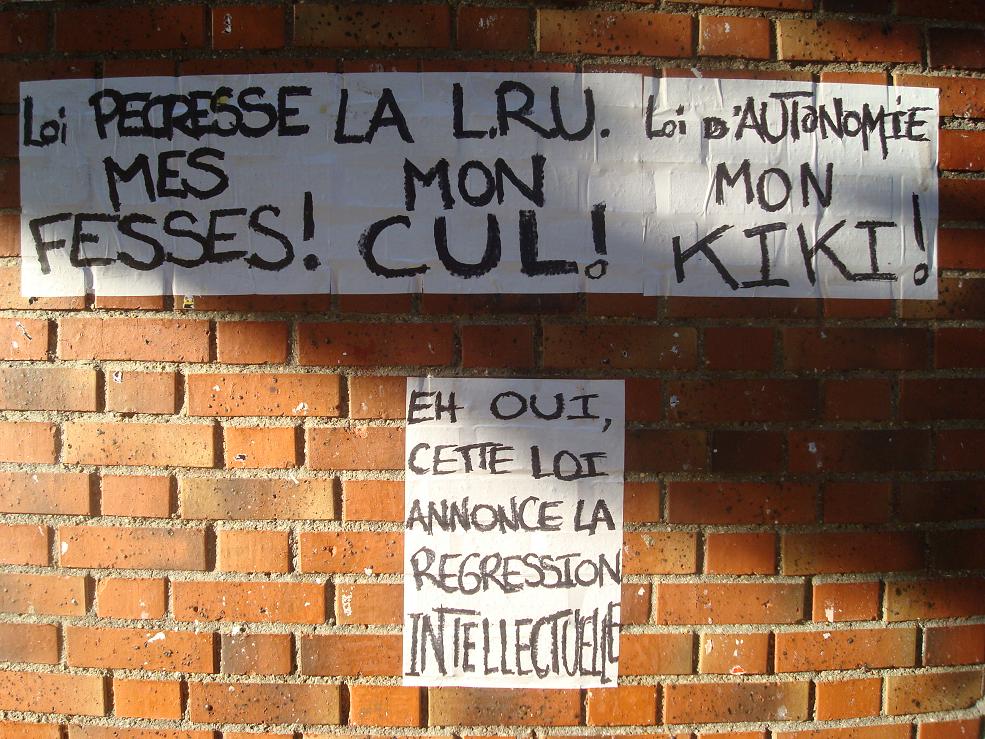 Loi PECRESSE
MES
FESSES!
LA L.R.U.
MON
CUL!
Loi D'AUTONOMIE
MON
KIKI!
EH OUI,
CETTE LOI
ANNONCE LA
REGRESSION
INTELLECTUELLE